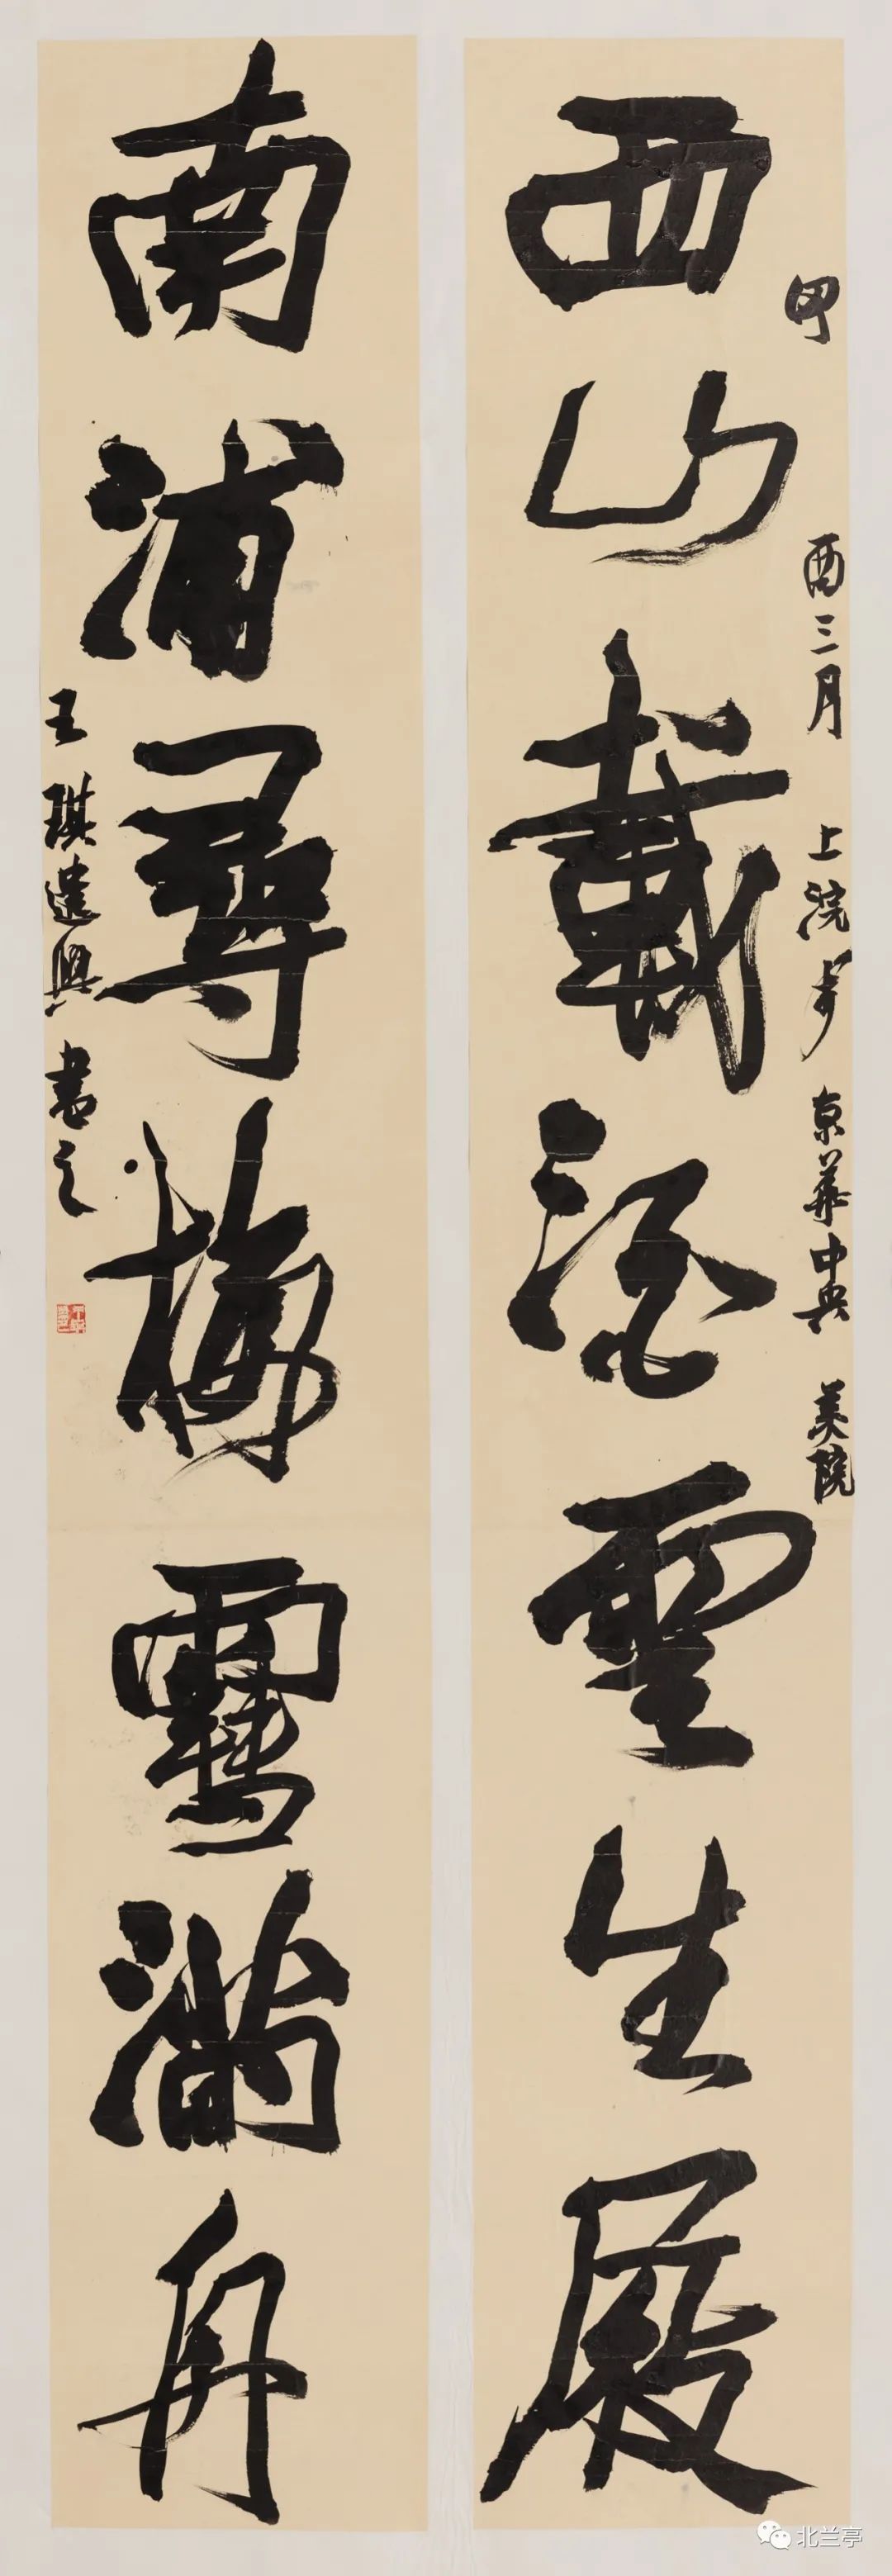 西山載酒雲生屐
南浦尋梅雪滿舟
酉三月 上浣 京華中央 美院
王琪遣興 書之
北兰亭